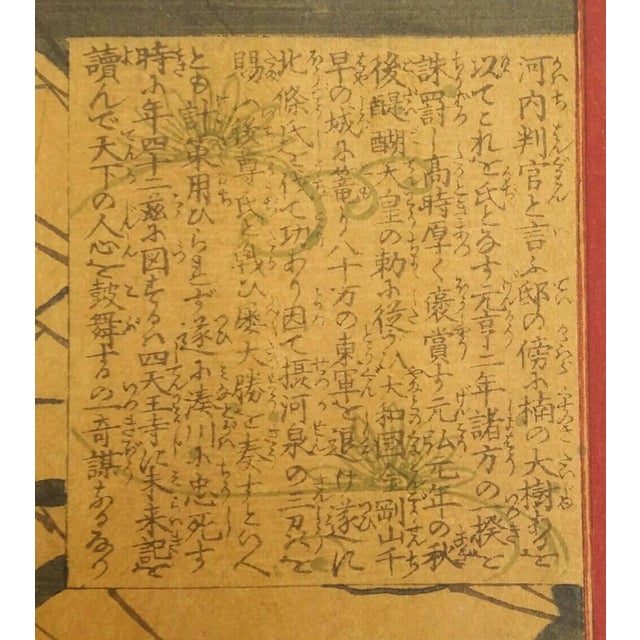 河内判官と言ふ邸の傍に楠の大樹あるを
以てこれを氏となす元亨二年諸方の一揆を
誅罰し高時厚く褒賞す元弘元年の秋
後醍醐天皇の勅に従ひ大和国金剛山千
早の城に篭り八十万の東軍を退け遂に
北條氏を伐て功あり因て摂河泉の三刕を
賜ハ後尊氏と戦ひ屡大勝を奏すといへ
とも計策用ひられず遂に湊川に忠死す
時に年四十二茲に図するハ四天王寺に未来記を
讀んで天下の人心を鼓舞するの一奇謀なるなり